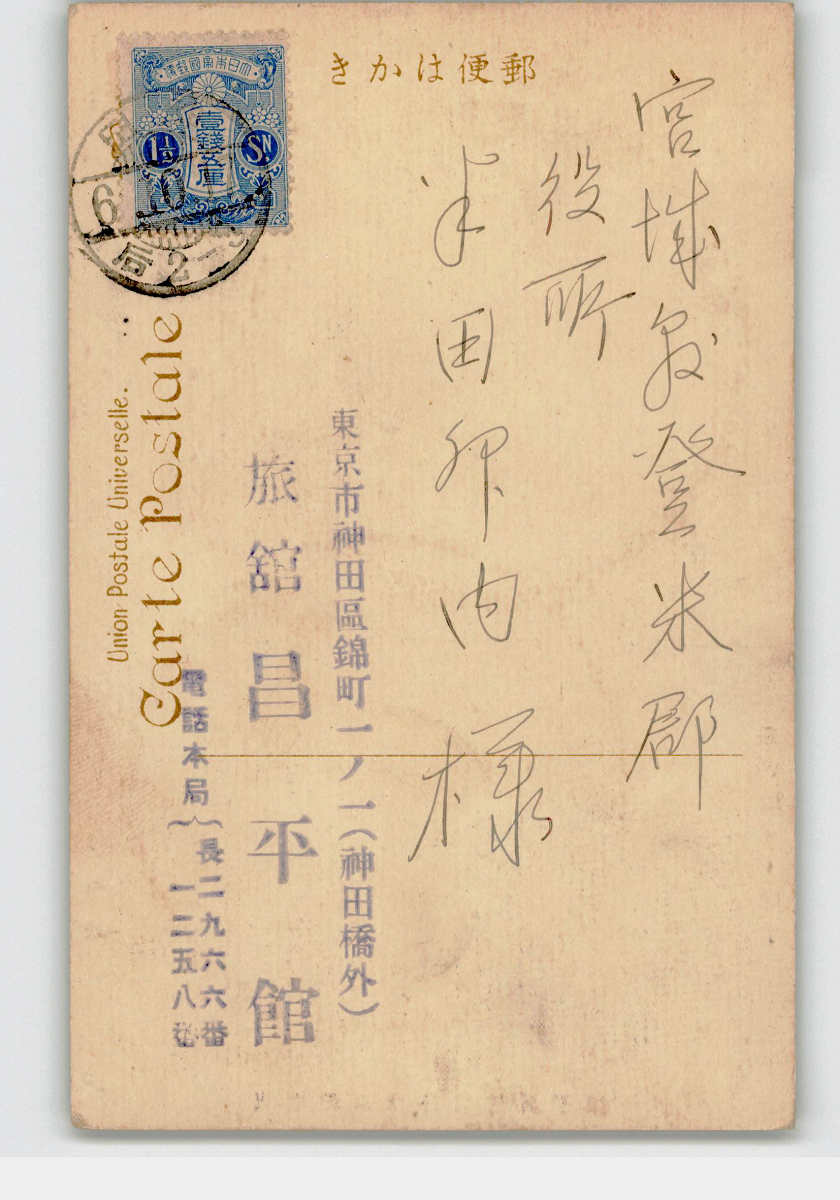 きかは便郵
大日本帝國郵便
壹錢五厘
1½ SN
6
局
2-3
宮城縣登米郡
役所
半田卯内様
東京市神田區錦町一ノ一(神田橋外)
旅舘昌平館
電話本局
長二九六六番
一二五八番
Union Postale Universelle.
Carte Postale